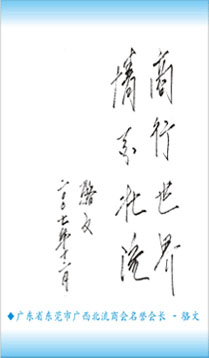 商行世界
情系北流
骆文
二〇〇七年十二月
◆广东省东莞市广西北流商会名誉会长 - 骆文